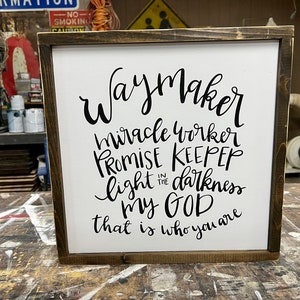 ORMATION
NO
SMOKING
CAUTION
Waymaker
miracle worker
PROMISE KEEPER
light IN THE darkness
MY GOD
that is who you are